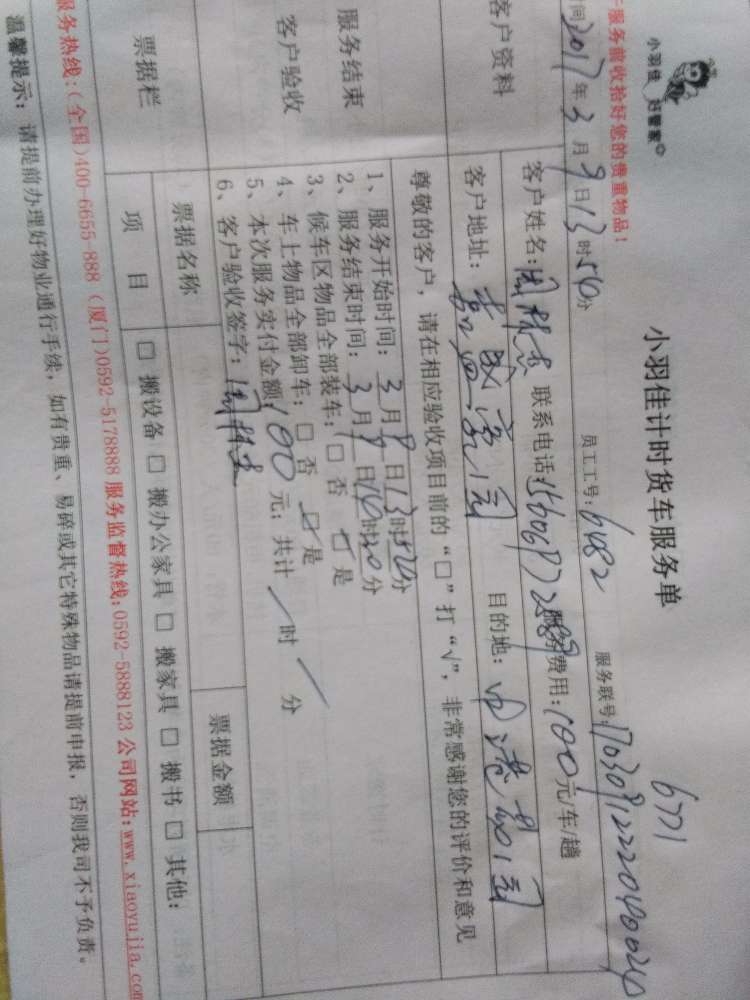 小羽佳 好管家
小羽佳计时货车服务单
6771
服务前收拾好您的贵重物品！
间2017年3月9日13时50分 员工工号：6482 服务联号：
客户资料
客户姓名： 联系电话： 服务费用：100元/车/趟
客户地址： 目的地：
尊敬的客户，请在相应验收项目前的“□”打“√”，非常感谢您的评价和意见
服务结束
客户验收
1、服务开始时间：3月9日13时50分
2、服务结束时间：3月9日
3、候车区物品全部装车：□否 ☑是
4、车上物品全部卸车：□否 ☑是
5、本次服务实付金额：100元；共计 / 时 / 分
6、客户验收签字：
票据栏
票据名称 票据金额
项目 □搬设备 □搬办公家具 □搬家具 □搬书 □其他：
服务热线：(全国)400-6655-888 (厦门)0592-5178888 服务监督热线：0592-5888123 公司网站：www.xiaoyujia.com
温馨提示：请提前办理好物业通行手续，如有贵重、易碎或其它特殊物品请提前申报，否则我司不予负责。